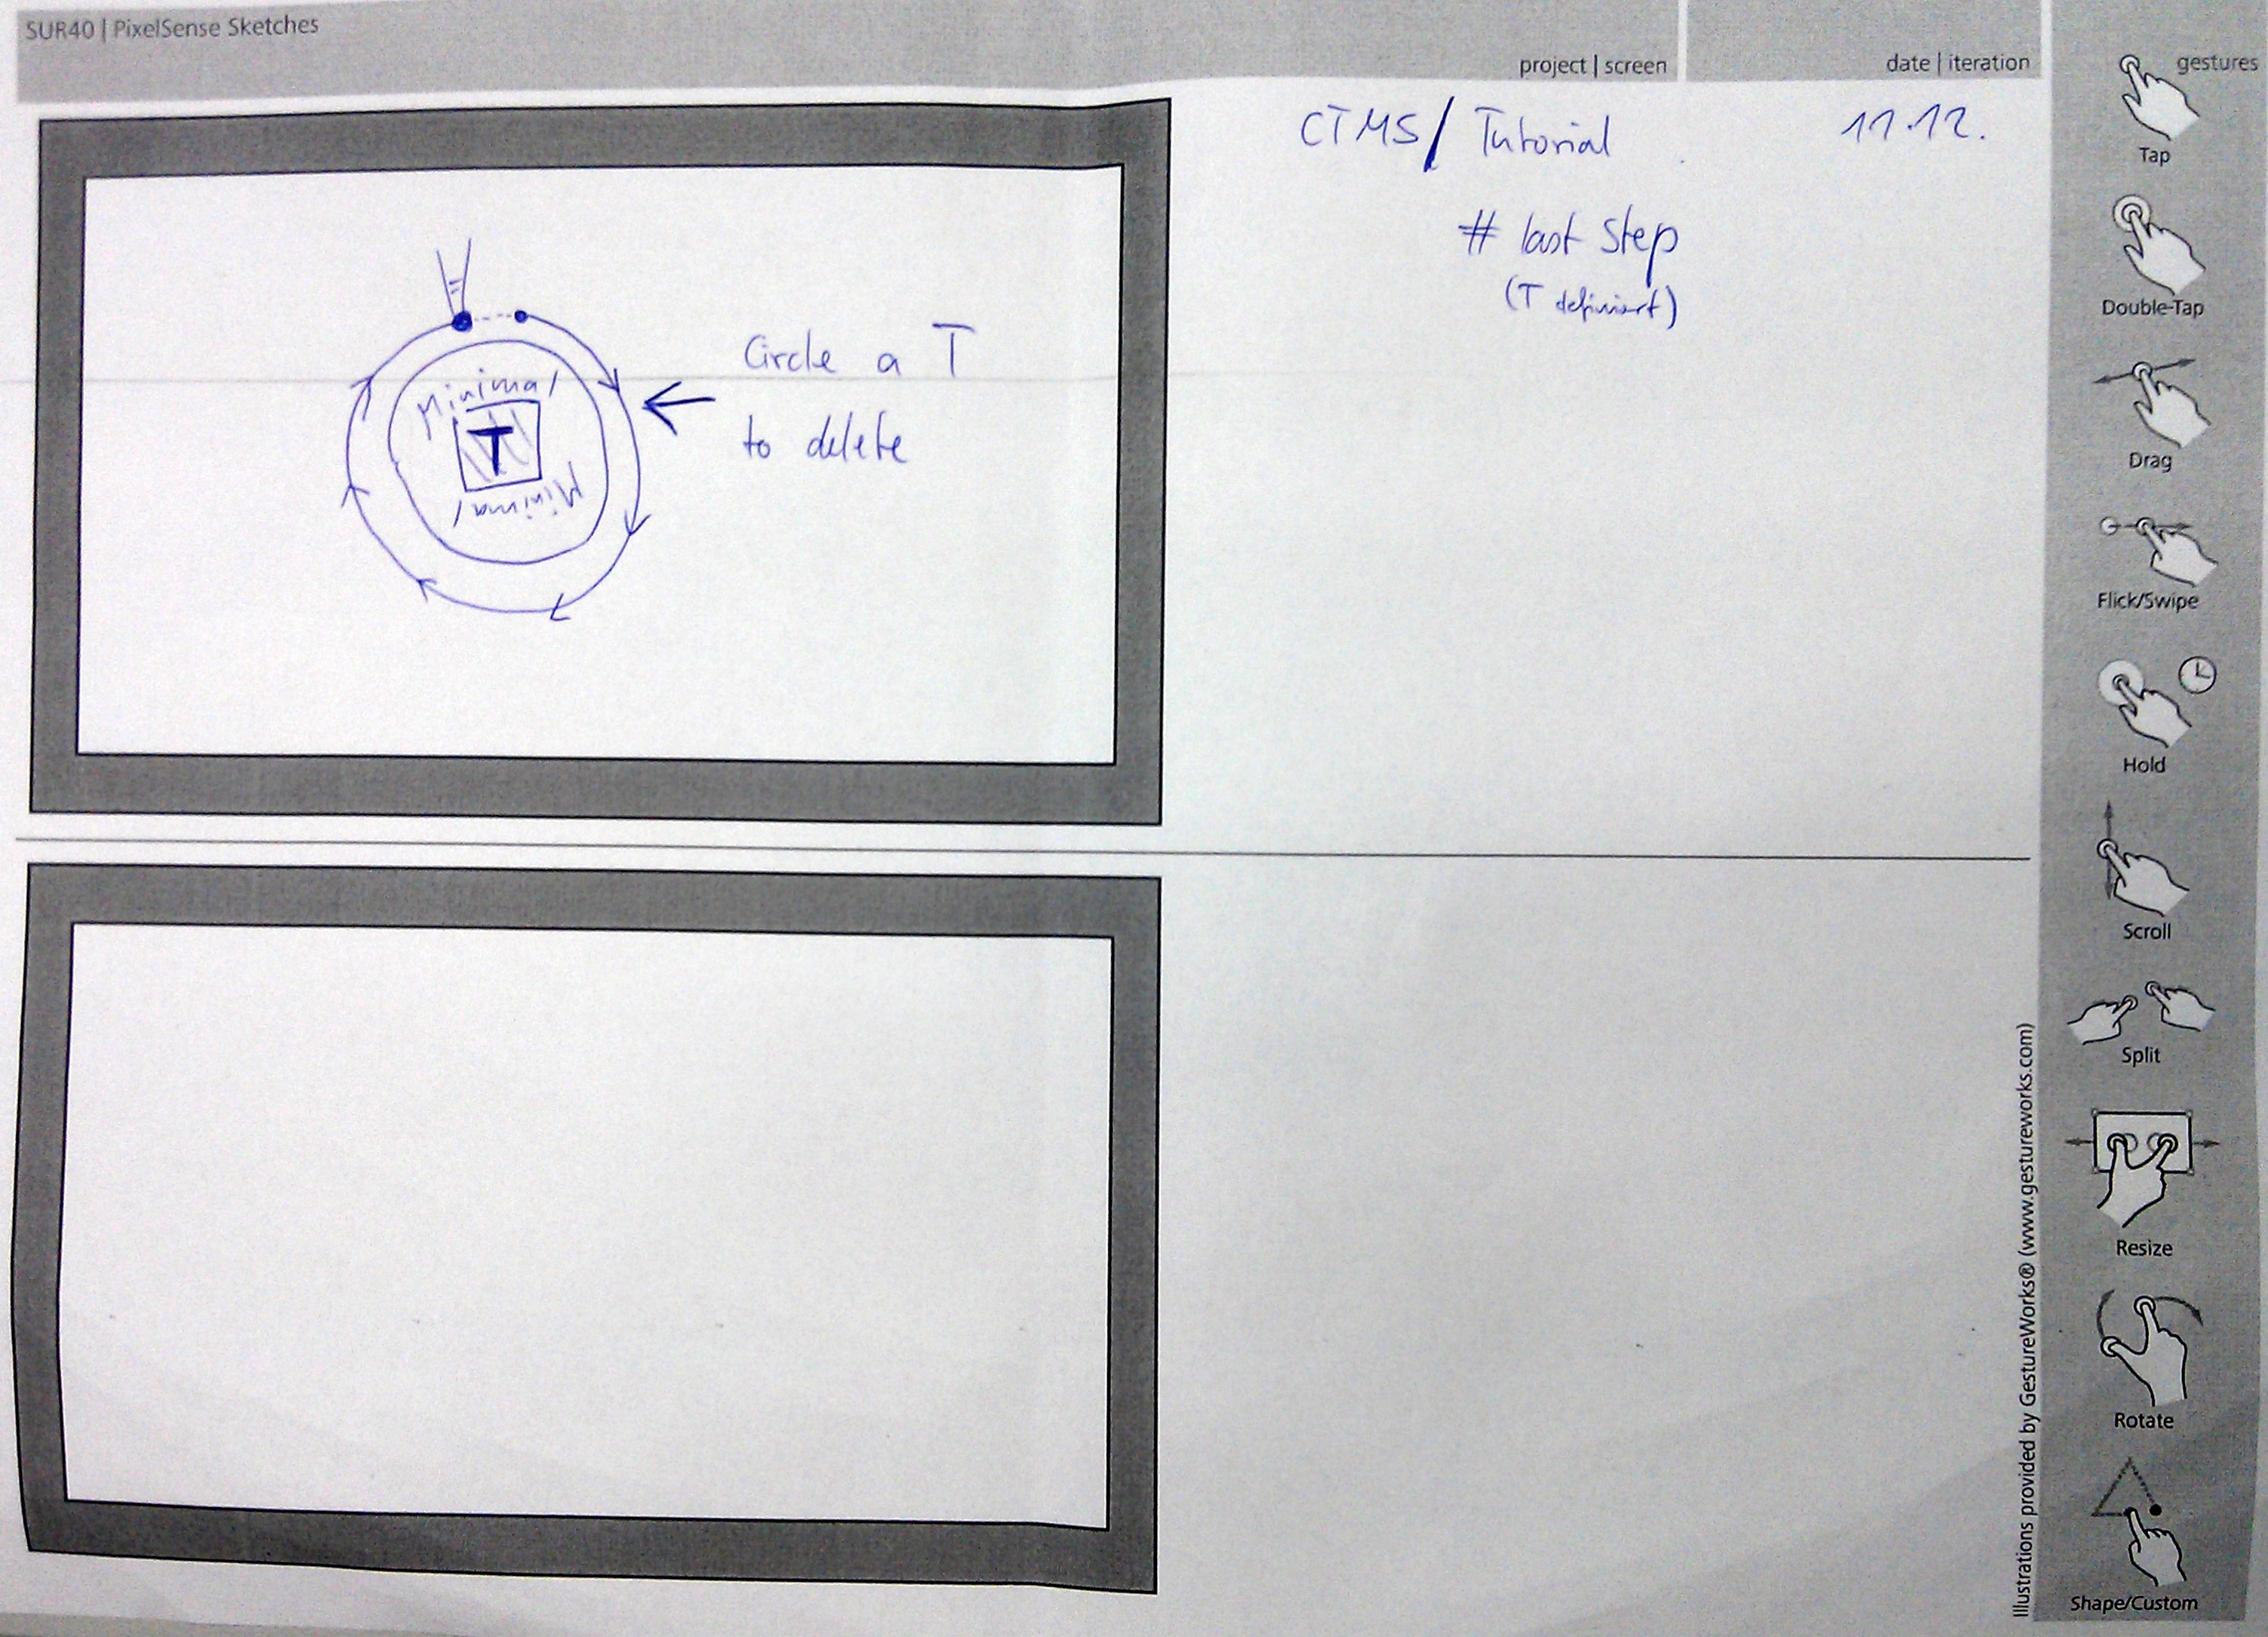 SUR40 | PixelSense Sketches
project | screen
date | iteration
gestures
CTMS / Tutorial
11.12.
# last step
(T definiert)
Minimal
T
Minimal
Circle a T
to delete
Tap
Double-Tap
Drag
Flick/Swipe
Hold
Scroll
Split
Resize
Rotate
Shape/Custom
Illustrations provided by GestureWorks® (www.gestureworks.com)